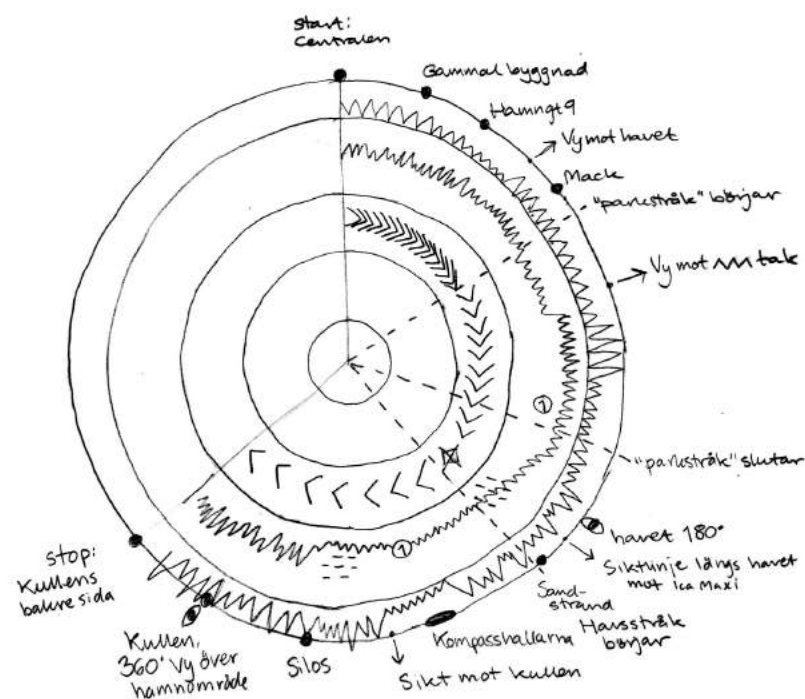 start:
Centralen
Gammal byggnad
Hamngt 9
Vy mot havet
Mack
"parkstråk" börjar
Vy mot tak
1
"parkstråk" slutar
havet 180°
Siktlinje längs havet
mot Ica Maxi
Sand-
strand
Havsstråk
börjar
1
Kompasshallarna
Sikt mot kullen
Silos
Kullen,
360° Vy över
hamnområde
stop:
Kullens
bakre sida